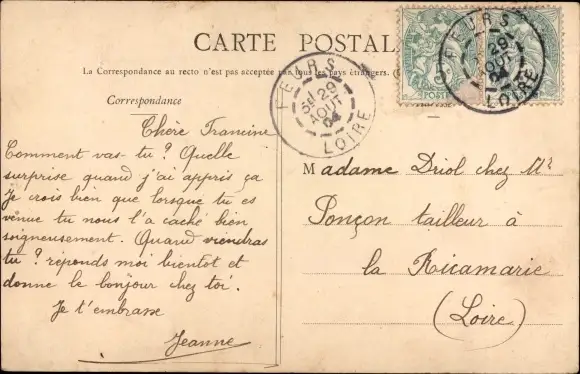 CARTE POSTAL
La Correspondance au recto n'est pas acceptée par tous les pays étrangers. (
Correspondance
Chère Francine
Comment vas-tu ? Quelle
surprise quand j'ai appris ça
Je crois bien que lorsque tu es
venue tu nous l'a caché bien
soigneusement. Quand viendras
tu ? réponds moi bientot et
donne le bonjour chez toi.
Je t'embrasse
Jeanne
FEURS
29
AOUT
04
LOIRE
FEURS
29
AOUT
04
LOIRE
POSTE
Madame Driol chez Mr
Ponçon tailleur à
la Ricamarie
(Loire)